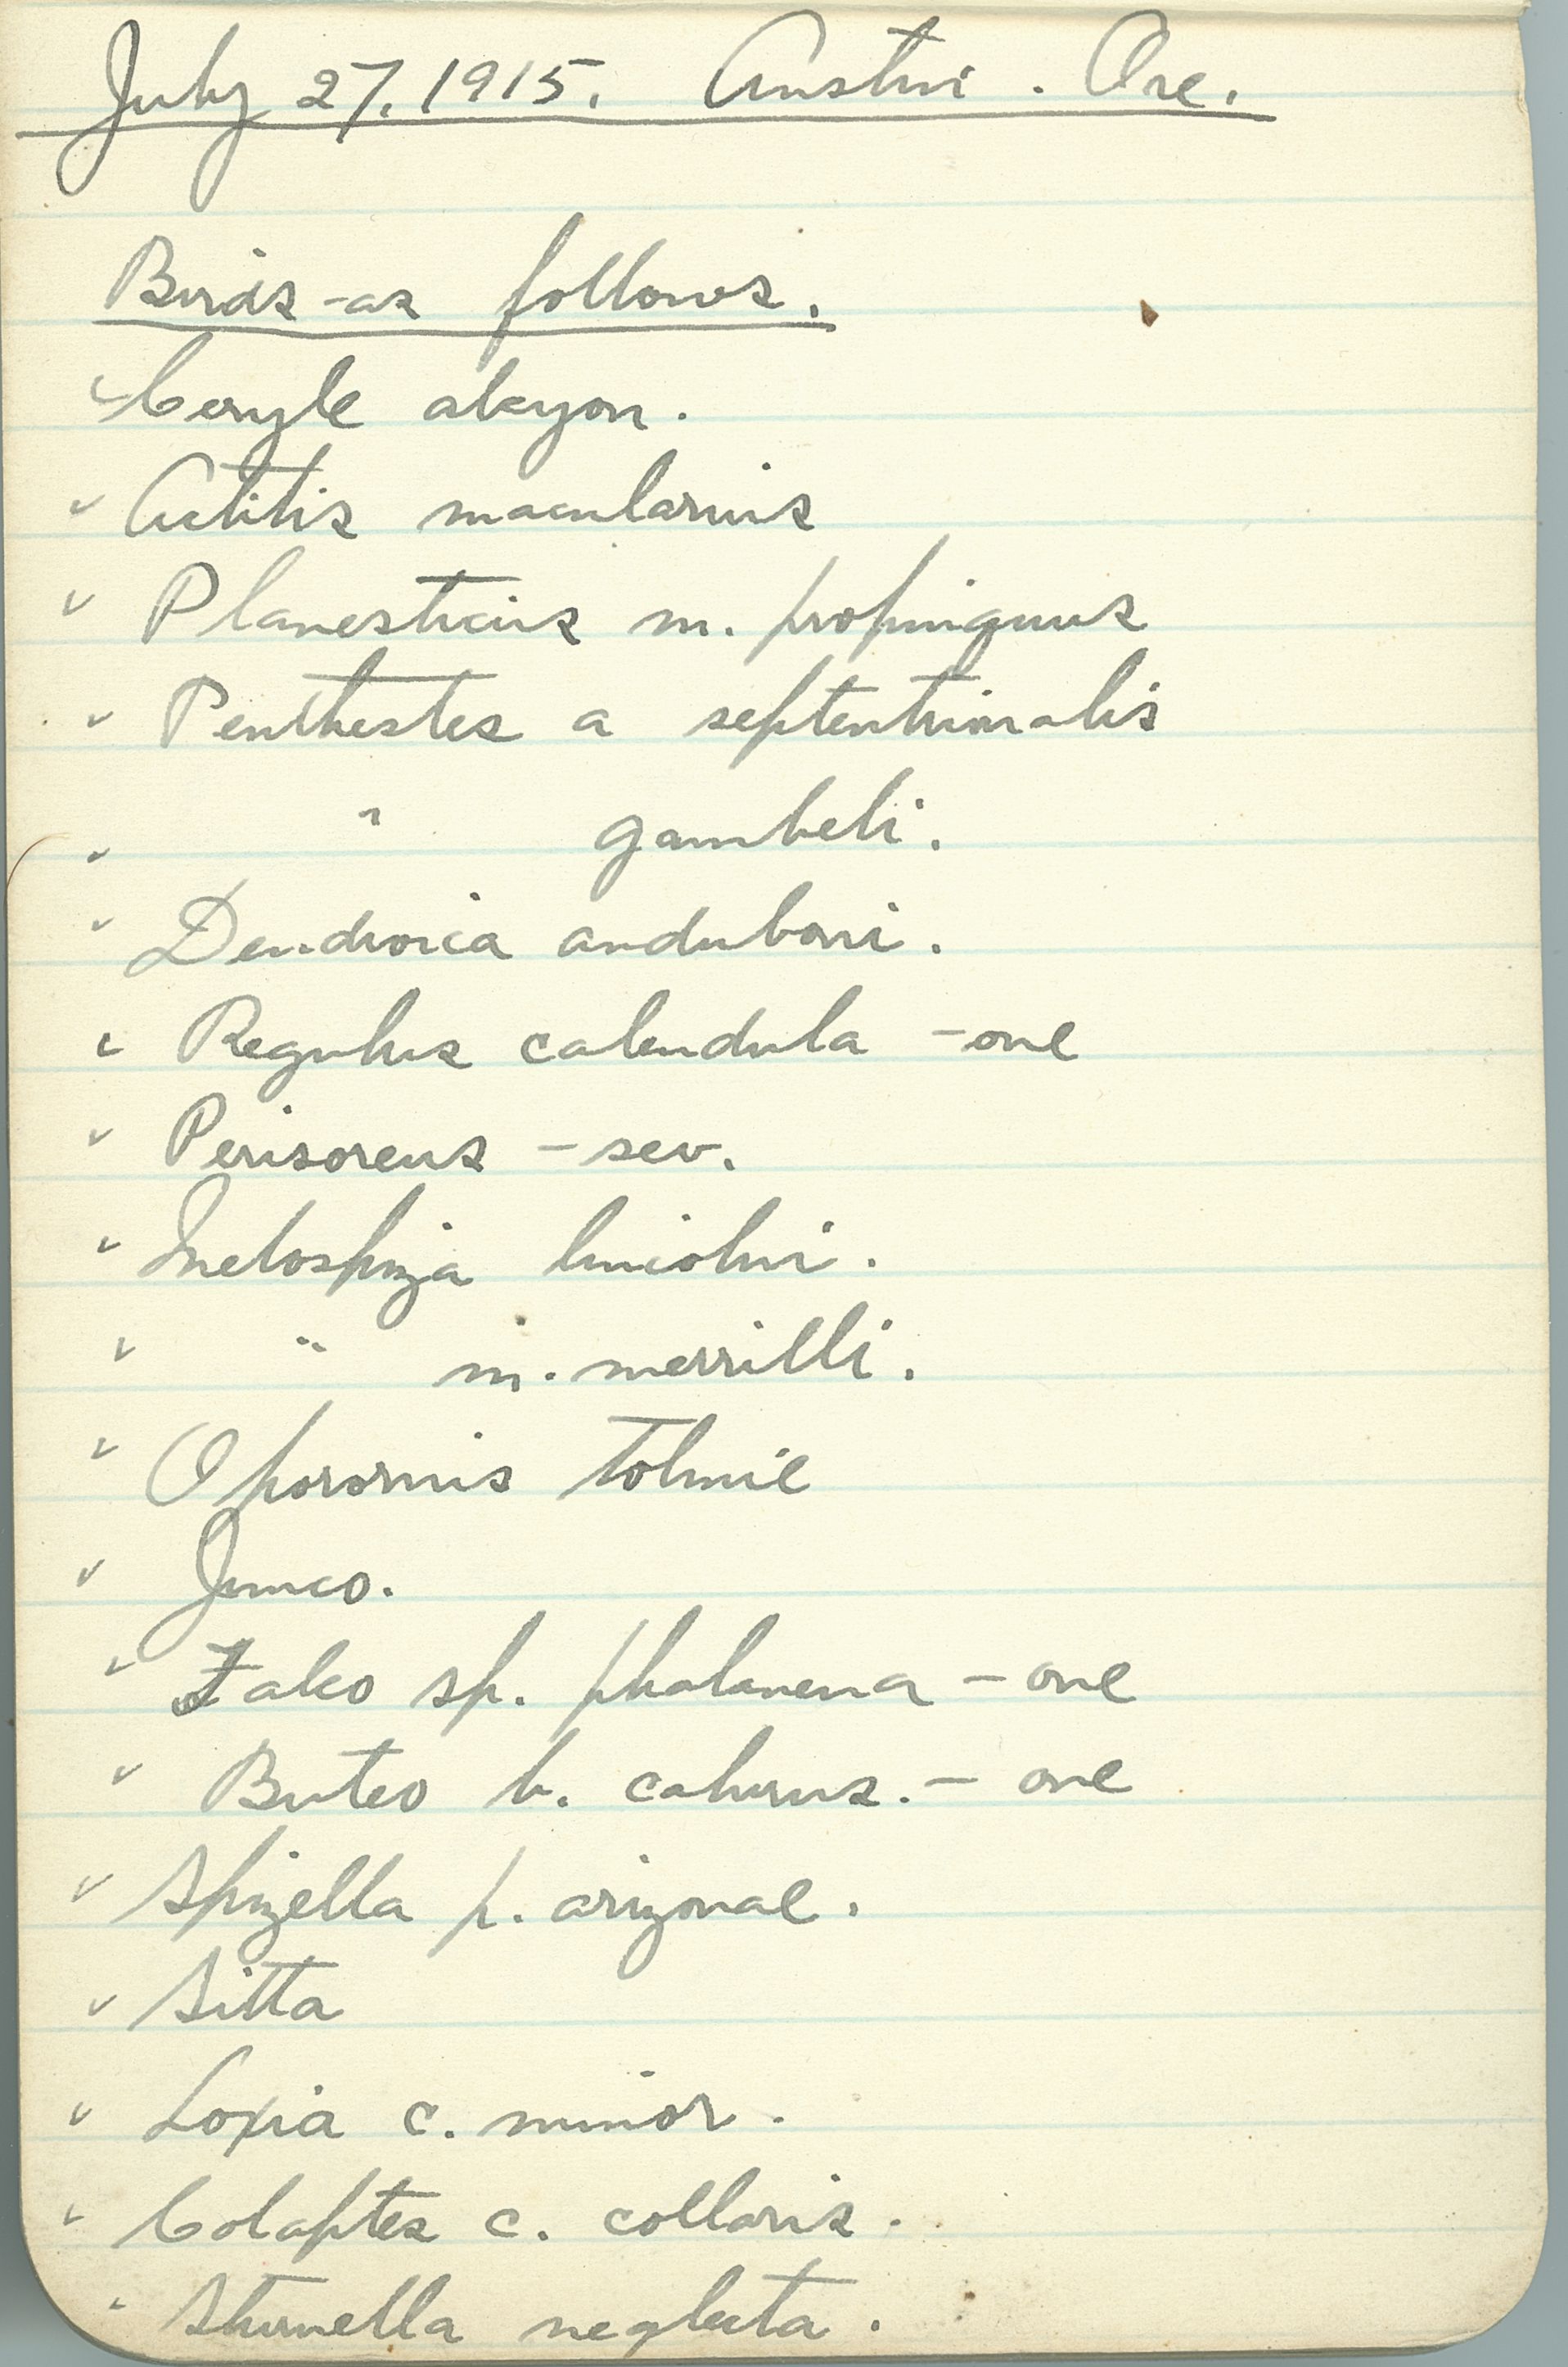 July 27, 1915. Austin. Ore.
Birds - as follows.
✓ Ceryle alcyon.
✓ Actitis macularius
✓ Planesticus m. propinquus
✓ Penthestes a septentrionalis
✓ " gambeli.
✓ Dendroica auduboni.
✓ Regulus calendula - one
✓ Perisoreus - sev.
✓ Melospiza lincolni.
✓ " m. merrilli.
✓ Oporornis Tolmie
✓ Junco.
✓ Falco sp. phalanena - one
✓ Buteo b. calurus. - one
✓ Spizella p. arizonae.
✓ Sitta
✓ Loxia c. minor.
✓ Colaptes c. collaris.
✓ Sturnella neglecta.